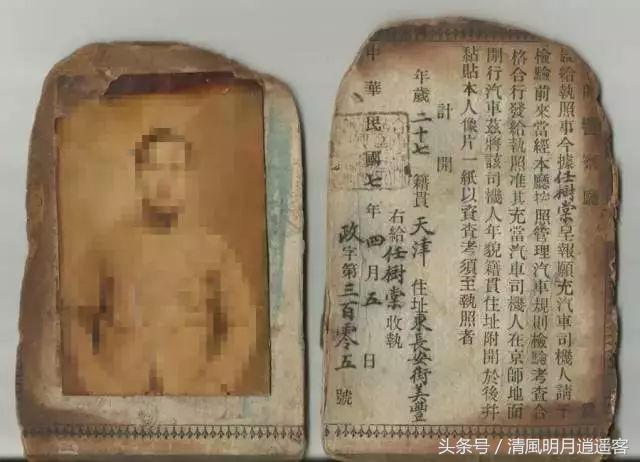 警察廳
給執照事今據任樹棠呈報願充汽車司機人請予
檢驗前來當經本廳按照管理汽車規則檢驗考查合
格合行發給執照准其充當汽車司機人在京師地面
開行汽車茲將該司機人年貌籍貫住址附開於後并
黏貼本人像片一紙以資查考須至執照者
計開
年歲二十七 籍貫天津 住址東長安街美豐
右給任樹棠收執
中華民國七年四月五日
政字第三百零五號
头条号 / 清風明月逍遥客